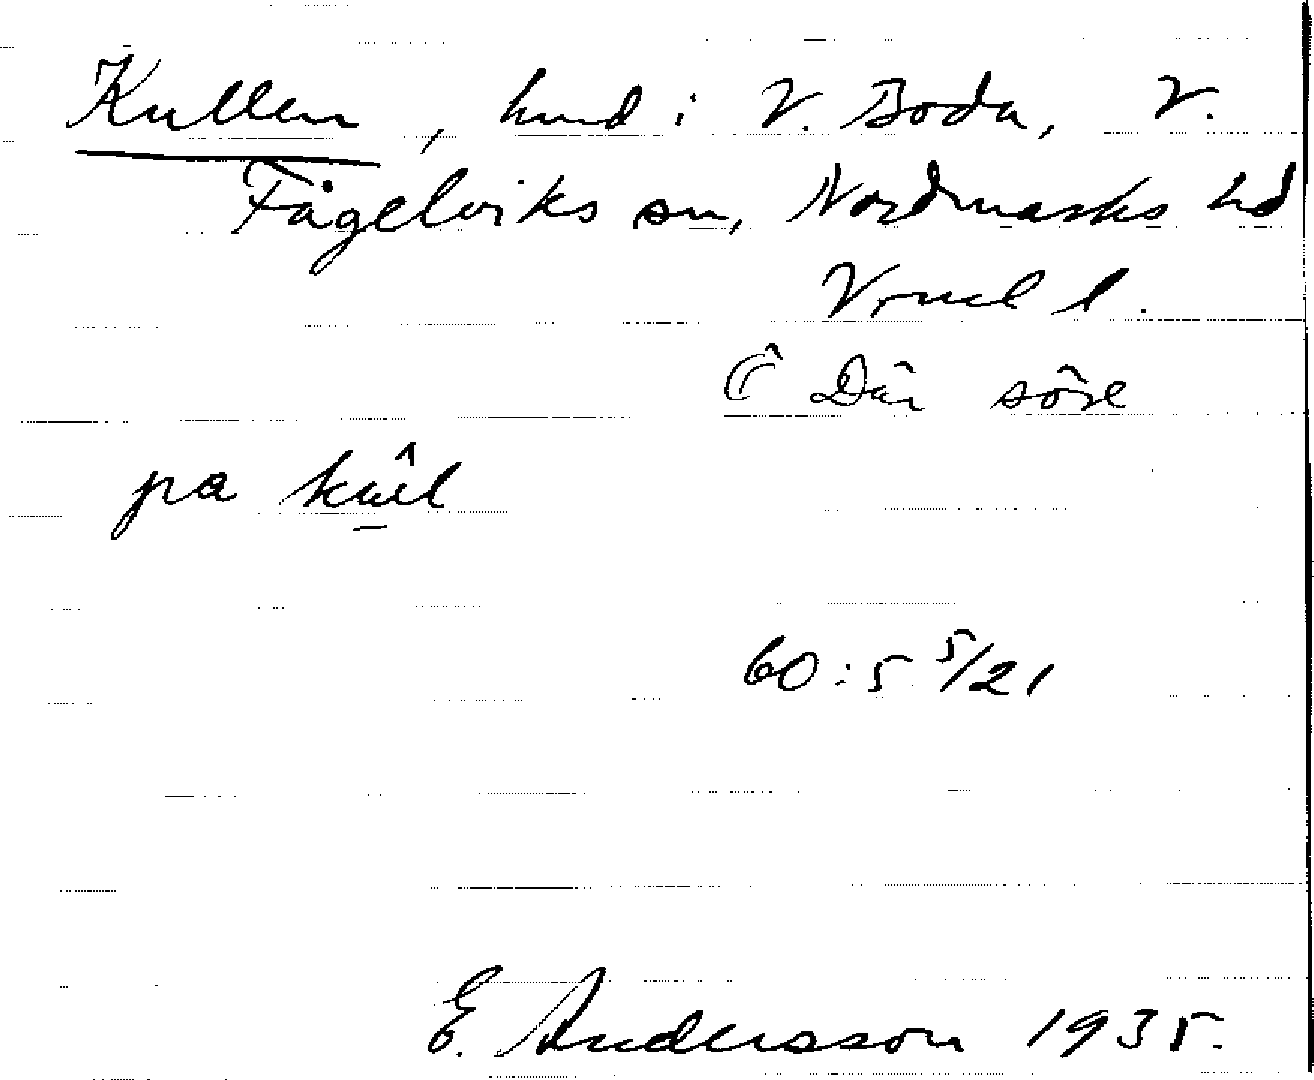 Kullen, hmd i V. Boda, V.
Fågelviks sn, Nordmarks hd
Vrml l.
Där söre
pa
60:5 5/21
E. Andersson 1935.